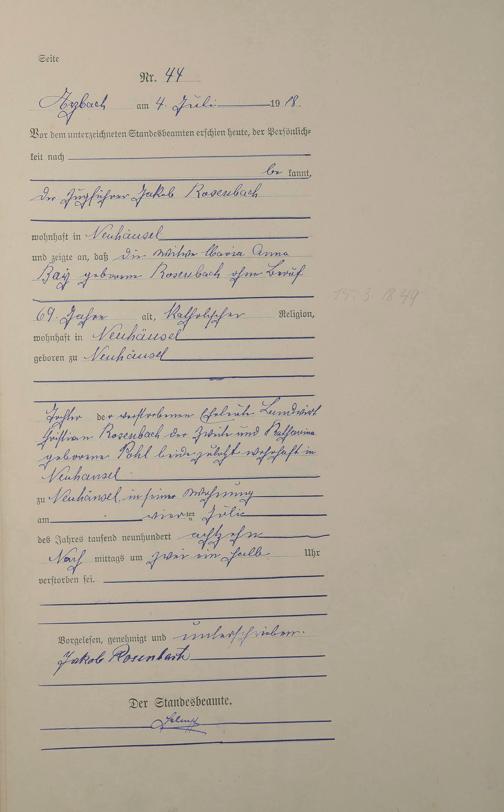 Seite
Nr. 44
Arzbach am 4. Juli 1918.
Vor dem unterzeichneten Standesbeamten erschien heute, der Persönlich-
keit nach
be kannt,
der Zugführer Jakob Rosenbach
wohnhaft in Neuhäusel
und zeigte an, daß die Witwe Maria Anna
Bay geborene Rosenbach ohne Beruf
15.3.1849
69 Jahre alt, Katholischer Religion,
wohnhaft in Neuhäusel
geboren zu Neuhäusel
Tochter der verstorbenen Eheleute Landwirt
Christian Rosenbach der Zweite und Katharina
geborene Pohl beide zuletzt wohnhaft in
Neuhausel
zu Neuhäusel in seiner Wohnung
am vierten Juli
des Jahres tausend neunhundert achtzehn
Nach mittags um zwei ein halb Uhr
verstorben sei.
Vorgelesen, genehmigt und unterschrieben.
Jakob Rosenbach
Der Standesbeamte.